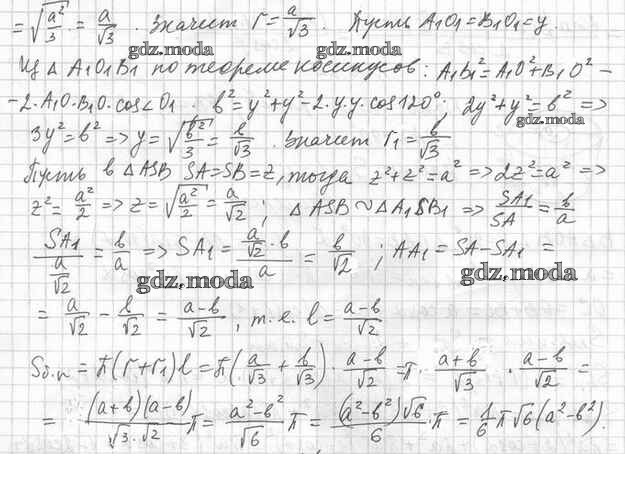 = √(a²/3) = a/√3 . Значит r = a/√3 . Пусть A₁O₁=B₁O₁=y.
gdz.moda
gdz.moda
Из △ A₁O₁B₁ по теореме косинусов: A₁b₁²=A₁O²+B₁O²−
−2·A₁O·B₁O·cos∠O₁ . b²=y²+y²−2·y·y·cos120°; 2y²+y²=b² =>
gdz.moda
3y²=b² => y=√(b²/3)=b/√3 . Значит r₁=b/√3
Пусть в △ASB SA=SB=z, тогда z²+z²=a² =>2z²=a² =>
z²=a²/2 => z=√(a²/2)=a/√2 ; △ASB ~ △A₁SB₁ => SA₁/SA=b/a
SA₁/(a/√2) = b/a => SA₁ = (a/√2·b)/a = b/√2 ; AA₁=SA−SA₁ =
gdz.moda
gdz.moda
= a/√2 − b/√2 = (a−b)/√2 , т.е. l = (a−b)/√2
Sб.п = π(r+r₁)l = π(a/√3 + b/√3) · (a−b)/√2 = π · (a+b)/√3 · (a−b)/√2 =
= ((a+b)(a−b))/(√3·√2) π = (a²−b²)/√6 π = ((a²−b²)√6)/6 ·π = 1/6 π√6(a²−b²).